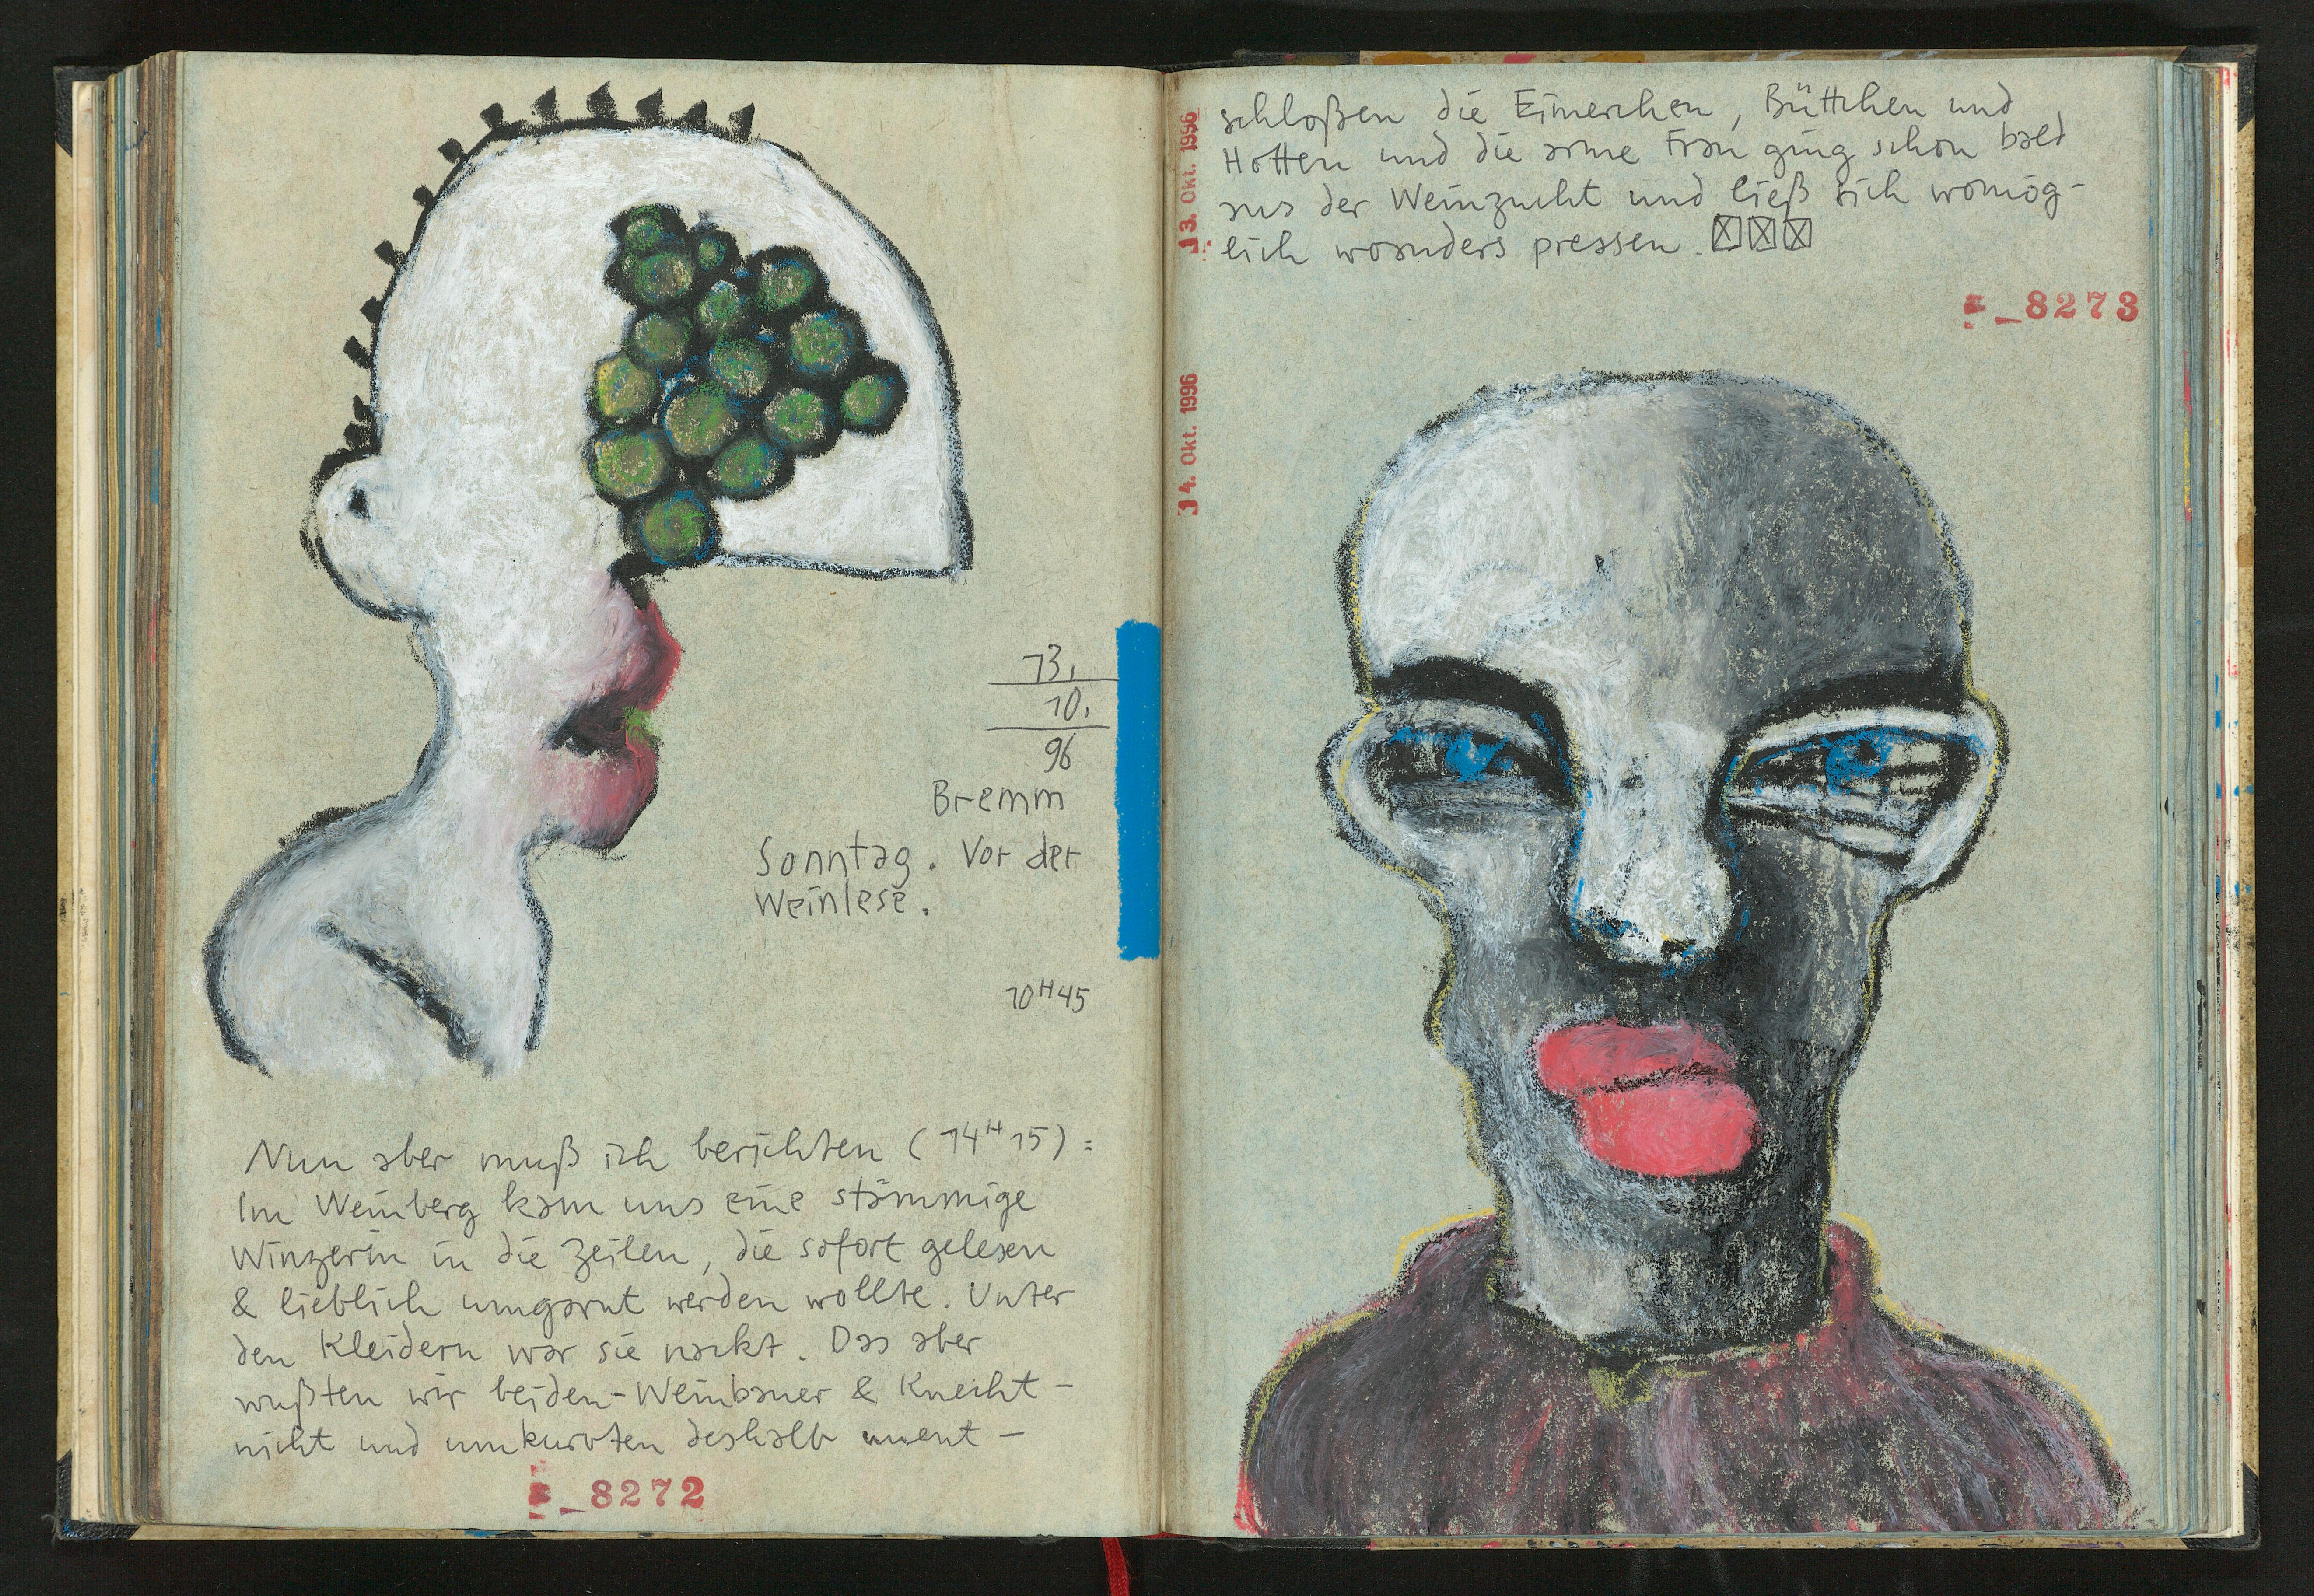 13.
10.
96
Bremm
Sonntag. Vor der
Weinlese.
10H45
Nun aber muß ich berichten (14H15):
Im Weinberg kam uns eine stämmige
Winzerin in die Zeilen, die sofort gelesen
& lieblich umgarnt werden wollte. Unter
den Kleidern war sie nackt. Das aber
wußten wir beiden - Weinbauer & Knecht -
nicht und umkurvten deshalb unent-
8272
13. Okt. 1996
schloßen die Eimerchen, Büttchen und
Hotten und die arme Frau ging schon bald
aus der Weinzucht und ließ sich womög-
lich woanders pressen.
8273
14. Okt. 1996